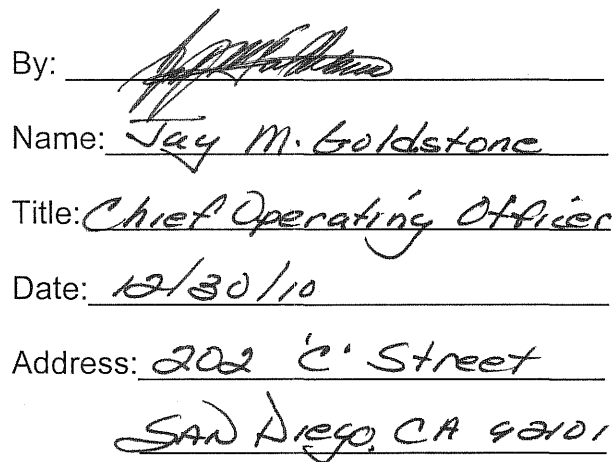 By:
Name: Jay M. Goldstone
Title: Chief Operating Officer
Date: 12/30/10
Address: 202 'C' Street
SAN Diego, CA 92101